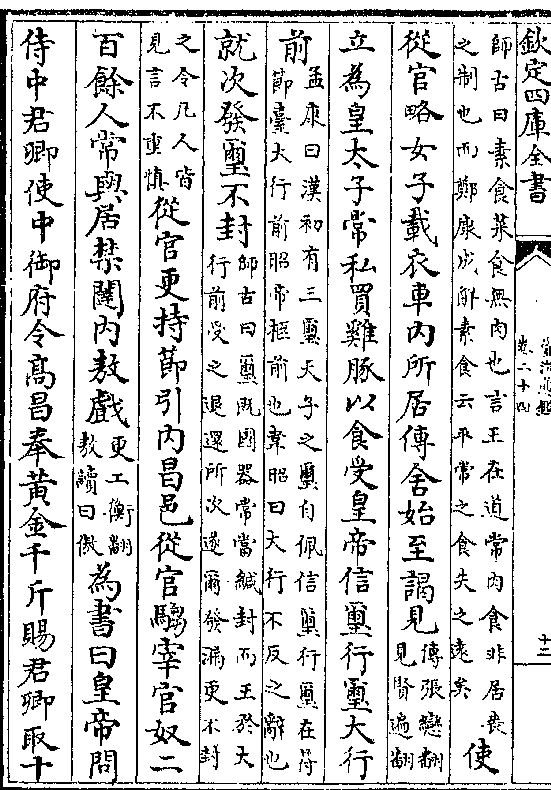 欽定四庫全書
資治通鑑
卷二十四
十二
師古曰素食菜食無肉也言王在道常肉食非居喪
之制也而鄭康成解素食云平常之食失之遠矣
使
從官略女子載衣車内所居傳舍始至謁見
傳張戀翻
見賢遍翻
立為皇太子常私買雞豚以食受皇帝信璽行璽大行
前
孟康曰漢初有三璽天子之璽自佩信璽行璽在符
節臺大行前昭帝柩前也韋昭曰大行不反之辭也
就次發璽不封
師古曰璽既國器常當緘封而王於大
行前受之退還所次遂爾發漏更不封
之令凡人皆
見言不重慎
從官更持節引内昌邑從官騶宰官奴二
百餘人常與居禁闥内敖戲
更工衡翻
敖讀曰傲
為書曰皇帝問
侍中君卿使中御府令髙昌奉黄金千斤賜君卿取十